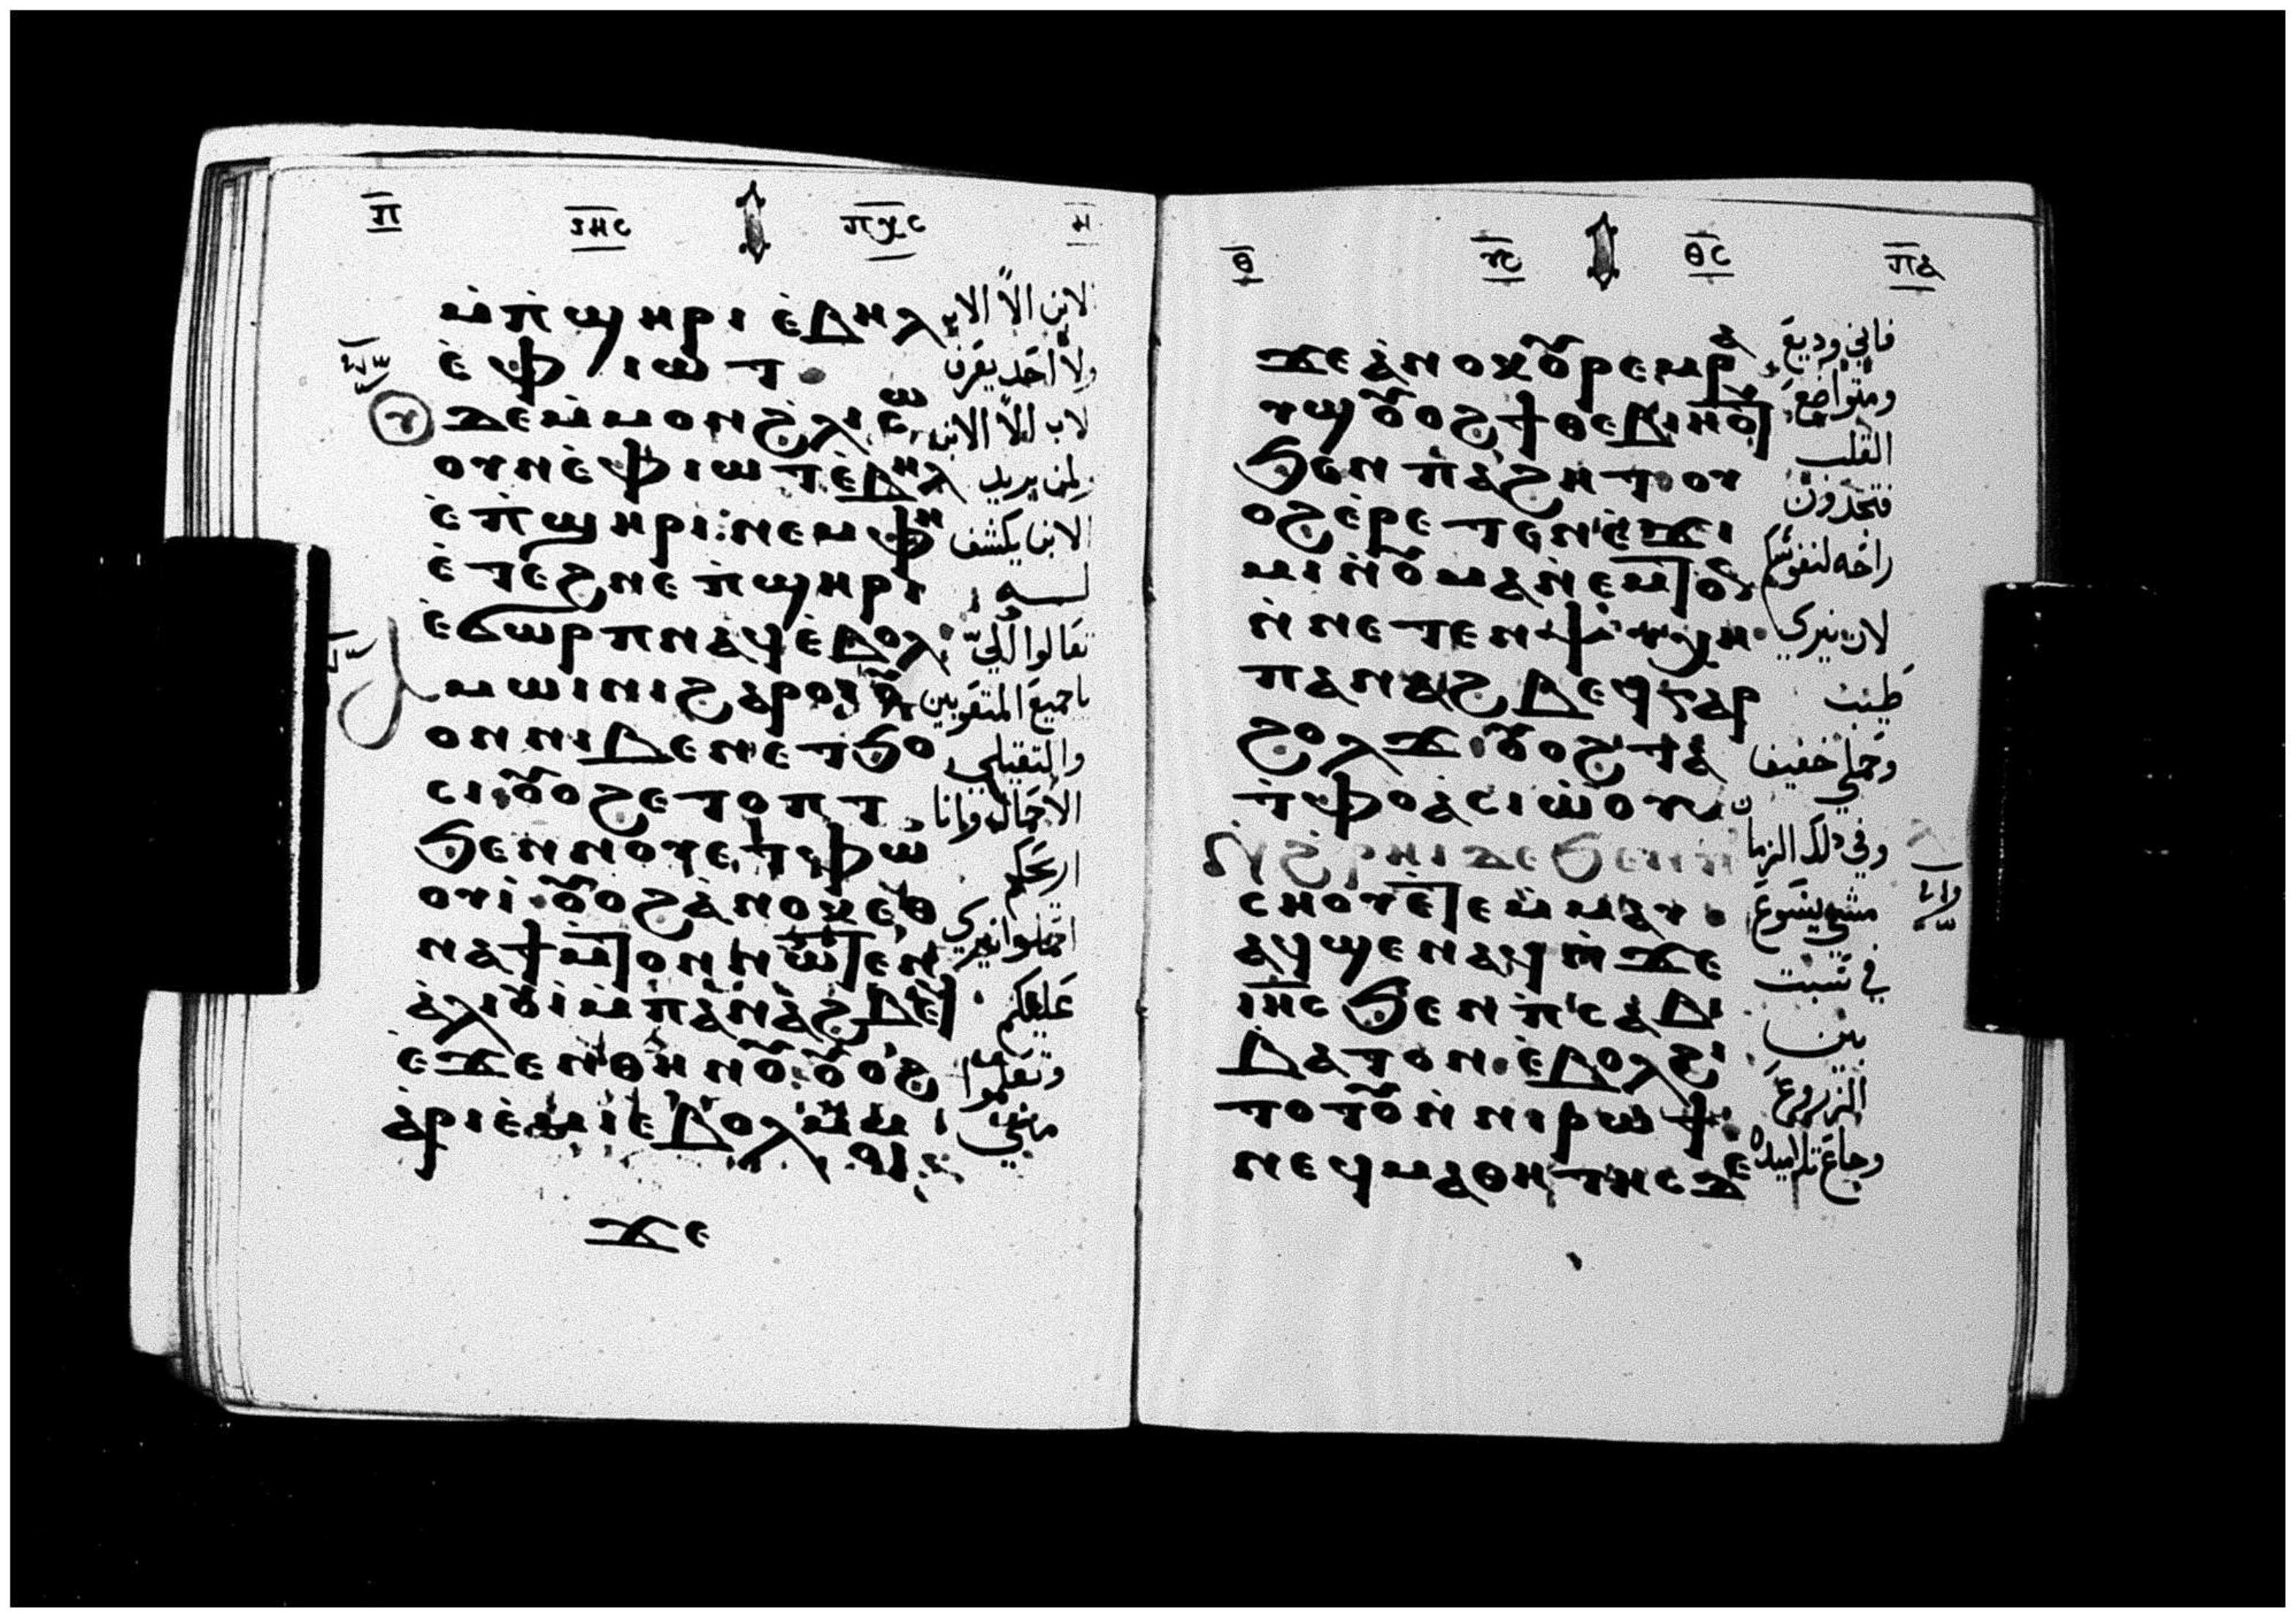 ⲡ̅ ⲓⲏⲥ ⲡⲭⲥ ⲏ
ⲙ̀ⲡ̀ϣⲏⲣⲓ ⲉ̀ⲃⲏⲗ
لابن الا الاب
ⲉ̀ⲫⲓⲱⲧ
ولا احد يعرف
ⲇⲉ ⲙ̀ⲙⲟⲛ ϩⲗⲓ ⲥⲱ
لاب الا الابن
ⲟⲩⲛ ⲉ̀ⲫⲓⲱⲧ ⲉ̀ⲃⲏⲗ
لمن يريد
ⲉ̀ⲡ̀ϣⲏⲣⲓ: ⲛⲉⲙ ⲫⲏ
الابن يكشف
ⲉ̀ⲧⲉϩⲛⲉ ⲡ̀ϣⲏⲣⲓ
لـــه
ⲉ̀ϭⲱⲣⲡ ⲛⲁϥ ⲉ̀ⲃⲟⲗ
تعالوا اليّ
ⲁⲙⲱⲓⲛⲓ ϩⲁⲣⲟⲓ ⲟⲩ
يا جميع المتعوبين
ⲟⲛ ⲛⲓⲃⲉⲛ ⲉⲧϧⲟ
والثقيلي
ⲥⲓ ⲟⲩⲟϩ ⲉⲧⲟⲡⲧ
الاحمال وانا
ϧⲉⲛ ⲛⲟⲩⲉⲧⲫⲱ
اريحكم
ⲟⲩⲓ̀ ⲟⲩⲟϩ ⲁ̀ⲛⲟⲕ ⲉⲑ
احملوا نيري
ⲛⲁϯⲙ̀ⲧⲟⲛ ⲛⲱⲧⲉⲛ
عليكم
ⲁ̀ⲗⲓⲟⲩⲓ̀ ⲙ̀ⲡⲁⲛⲁϩⲃⲉϥ
وتعلموا
ⲉ̀ϫⲉⲛ ⲑⲏⲛⲟⲩ ⲟⲩⲟϩ
مني
ⲁ̀ⲣⲓⲉ̀ⲙⲓ ⲉ̀ⲃⲟⲗ ⲙ̀ⲙ
ⲟⲓ
ϫⲉ
ⲑ ⲩⲥ ⲑⲥ ⲡⲁ
ϫⲉ ⲁ̀ⲛⲟⲕ ⲟⲩⲣⲉⲙⲣⲁ
فاني وديع
ⲩϣ ⲟⲩⲟϩ ϯⲑⲉⲃⲓⲏⲟⲩⲧ
ومتواضع
ϧⲉⲛ ⲡⲁϩⲏⲧ ⲟⲩ
القلب
ⲟϩ ⲉ̀ⲣⲉⲧⲉⲛⲉ̀ϫⲓ
فتجدون
ⲙⲓ ⲛ̀ⲟⲩⲙⲁⲛ̀ⲉⲙⲧⲟⲛ
راحه لنفوسكم
ⲛ̀ⲛⲉⲧⲉⲛⲯⲩⲭⲏ
لان نيري
ⲡⲁⲛⲁϩⲃⲉϥ ⲅⲁⲣ
طيب
ϩⲟⲗϫ ⲟⲩⲟϩ ⲧⲁ
وحملي خفيف
ⲉ̀ⲧⲫⲟ ⲁⲥⲓⲱ̀ⲟⲩ
وفي ذلك الزمان
ⲛ̀ϩⲣⲏⲓ ⲇⲉ ϧⲉⲛ ⲡⲓ
ⲥⲏⲟⲩ ⲉ̀ⲧⲉⲙ̀ⲙⲁⲩ
مشي يسوع
ⲁϥϣⲉⲛⲁϥ ⲛ̀ϫⲉ
في سبت
ⲓⲏⲥ ϧⲉⲛ ⲡ̀ⲥⲁⲃ
بين
ⲃⲁⲧⲟⲛ ⲉ̀ⲃⲟⲗϩⲓ
الزروع
ⲧⲟⲧⲟⲩ ⲛ̀ⲛⲓⲣⲱϯ
وجاع تلاميذه
ⲛⲉϥⲙⲁⲑⲏⲧⲏⲥ ⲇⲉ